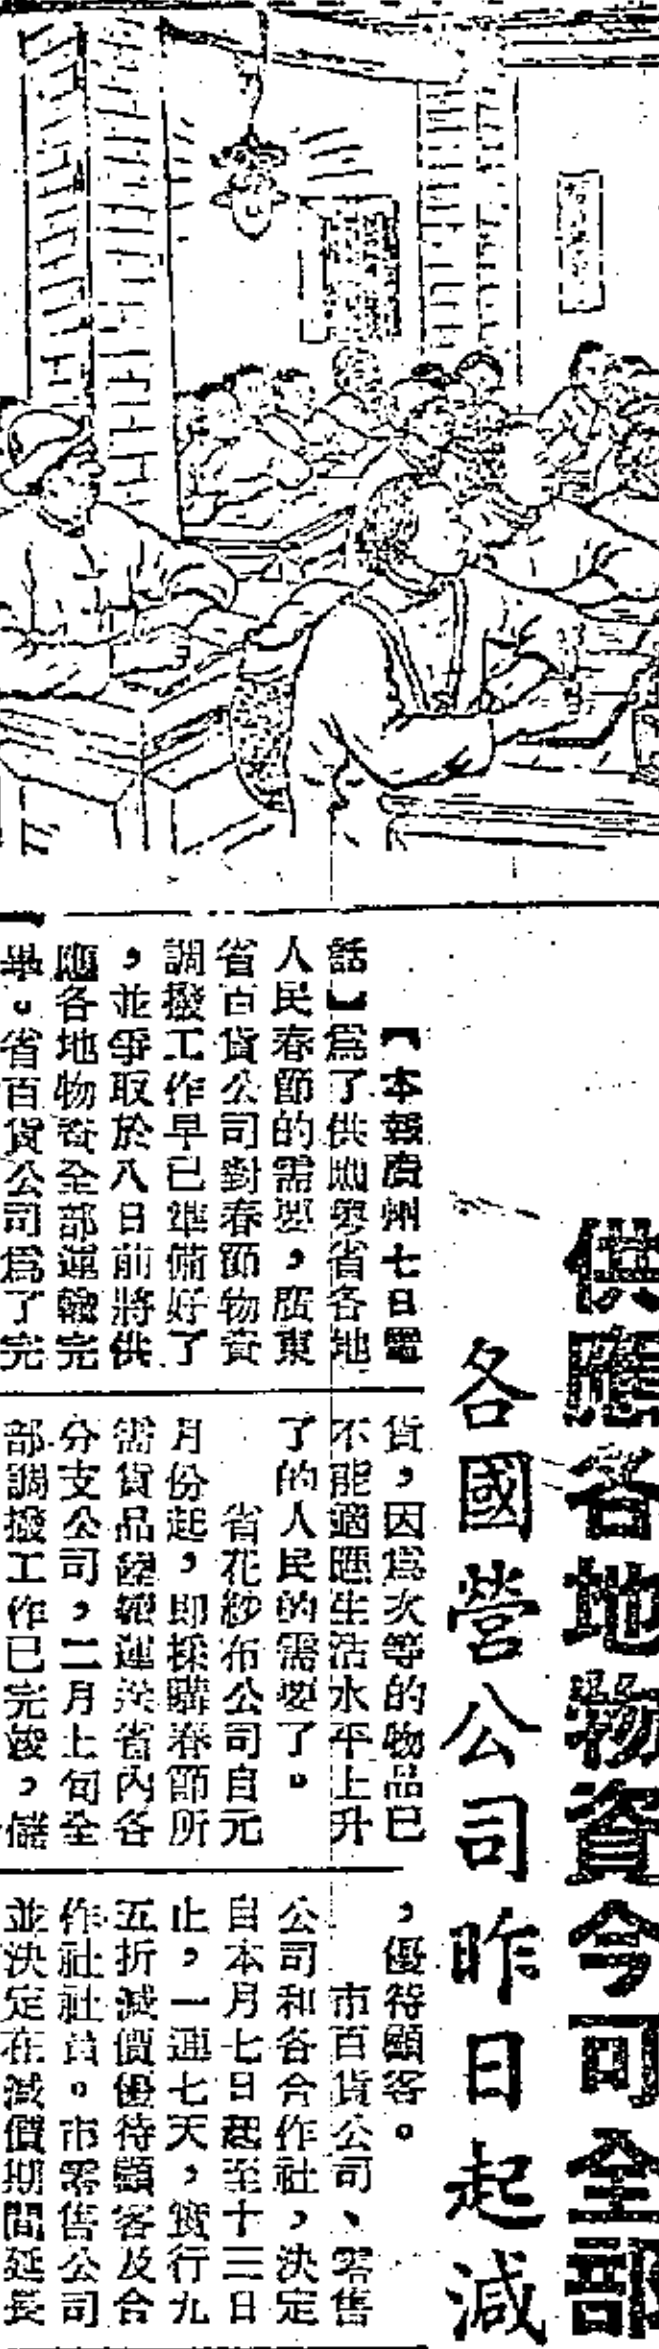 供應各地物資今可全部
各國營公司昨日起減
【本報廣州七日電
話】爲了供應粵省各地
人民春節的需要，廣東
省百貨公司對春節物資
調撥工作早已準備好了
，並爭取於八日前將供
應各地物資全部運輸完
畢。省百貨公司爲了完
貨，因爲次等的物品已
不能適應生活水平上升
了的人民的需要了。
省花紗布公司自元
月份起，即採購春節所
需貨品陸續運送省內各
分支公司，二月上旬全
部調撥工作已完竣，儲
，優待顧客。
市百貨公司、零售
公司和各合作社，決定
自本月七日起至十三日
止，一連七天，實行九
五折減價優待顧客及合
作社社員。市零售公司
並決定在減價期間延長